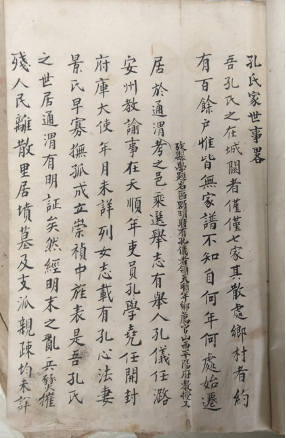 孔氏家世事畧
吾孔氏之在城關者僅僅七家其散處鄉村者約
有百餘戶惟皆無家譜不知自何年何處始遷
居於通渭考之邑乘選舉志有舉人孔儀任潞
安州教諭事在天順年吏員孔學堯任開封
府庫大使年月未詳列女志載有孔心法妻
景氏早寡撫孤成立崇禎中旌表是吾孔氏
之世居通渭有明証矣然經明末之亂兵燹摧
殘人民離散里居墳墓及支派親疎均未詳